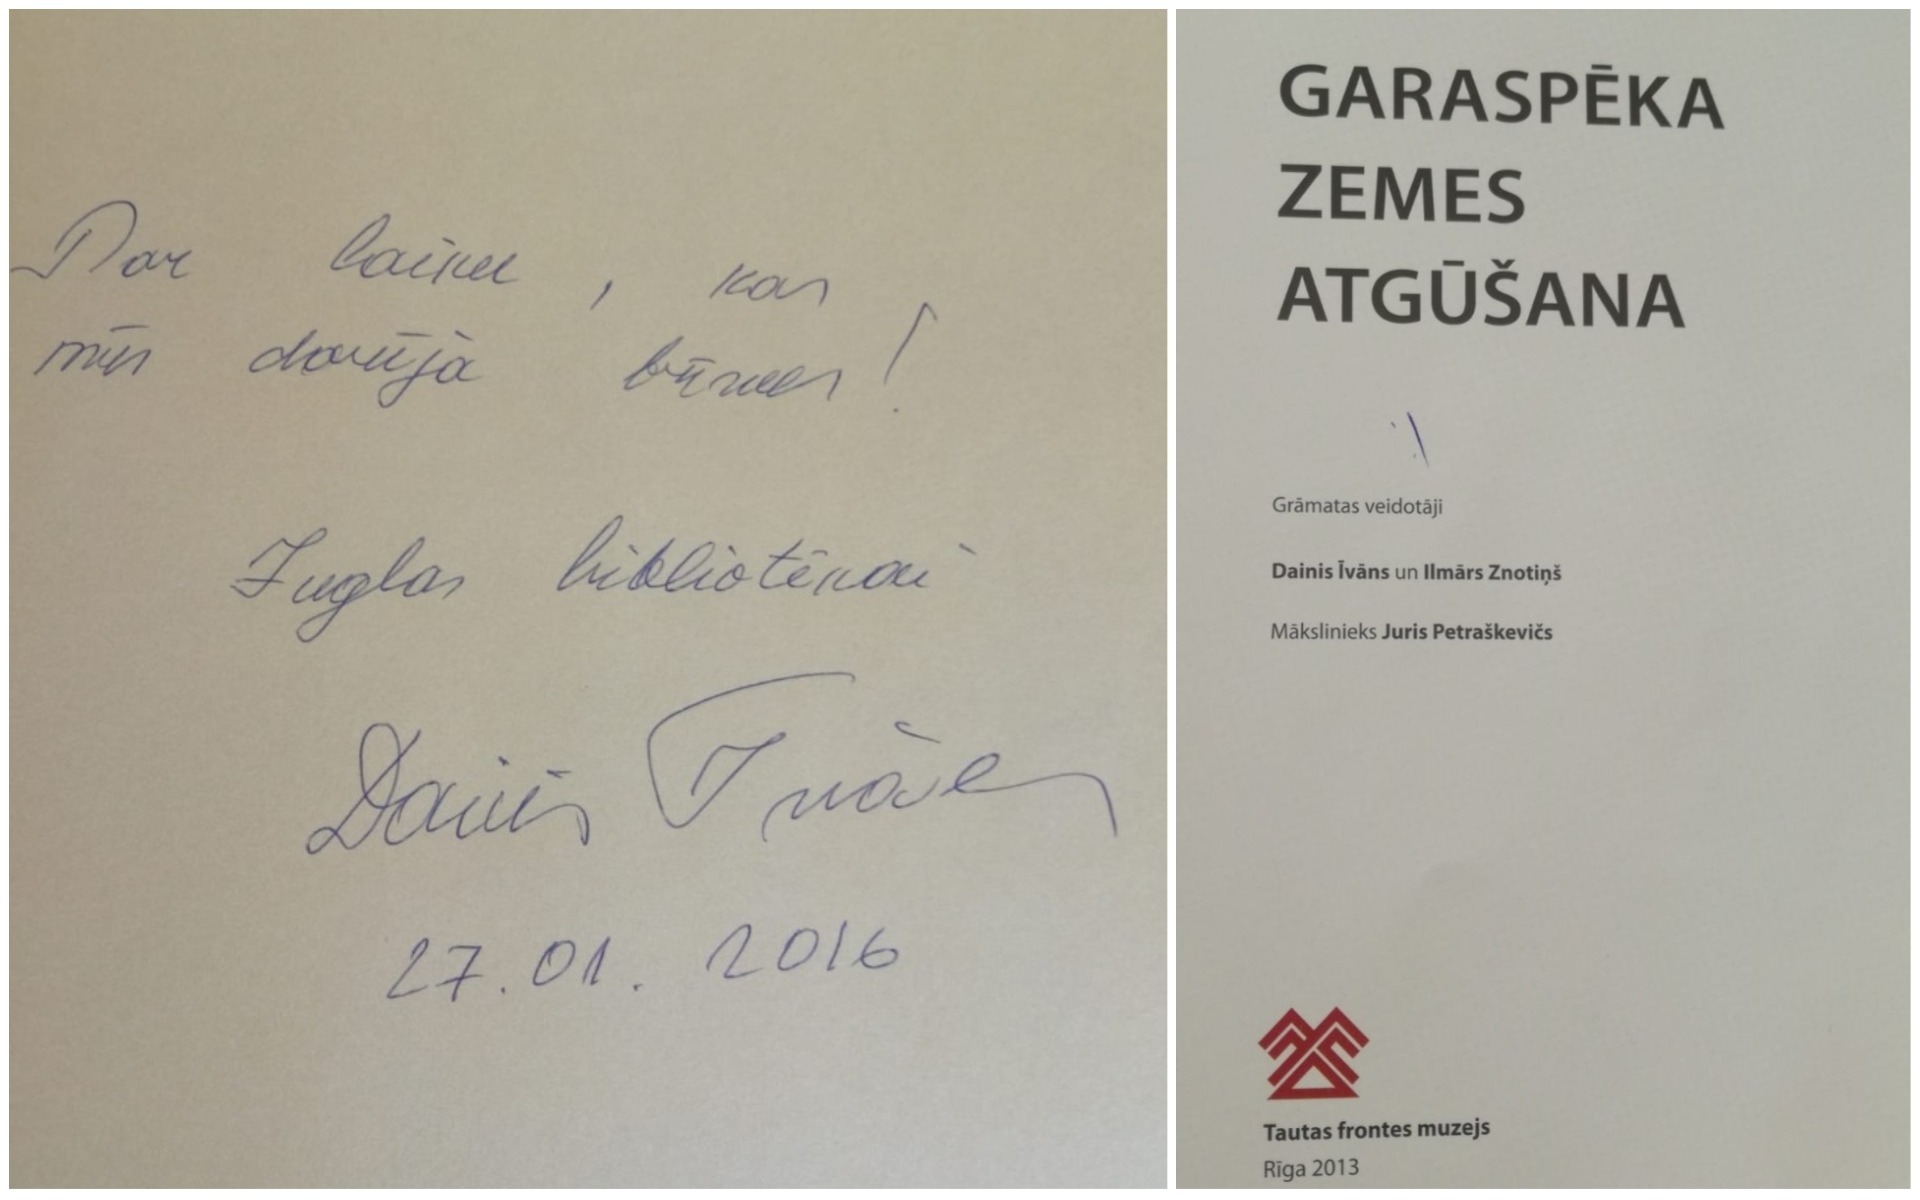 Par laiku, kas
mūs darīja brīvus!
Juglas bibliotēkai
Dainis Īvāns
27.01.2016
GARASPĒKA
ZEMES
ATGŪŠANA
Grāmatas veidotāji
Dainis Īvāns un Ilmārs Znotiņš
Mākslinieks Juris Petraškevičs
Tautas frontes muzejs
Rīga 2013